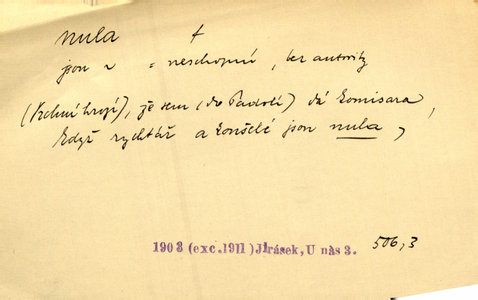 nula †
jsou ~ = neschopní, bez autority
(Vrchní hrozí), že sem (do Padolí) dá komisara,
když rychtář a konšelé jsou nula,
1903 (exc.1911) Jirásek, U nás 3. 506,3